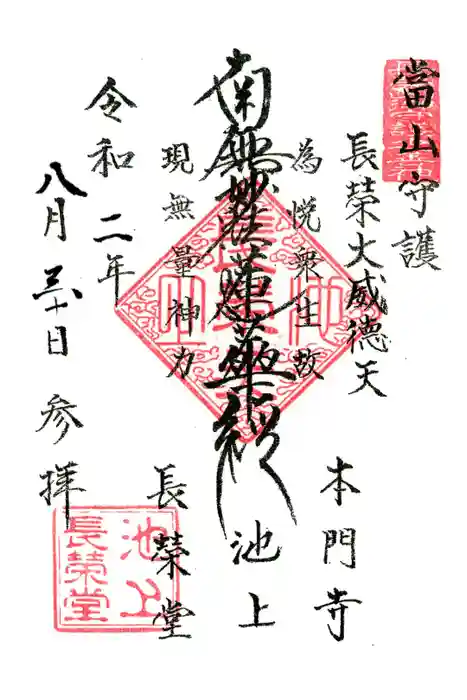 當山守護
長榮大威德天
為悦衆生故
南無妙法蓮華経
現無量神力
令和二年
八月三十日 参拝
本門寺
池上
長榮堂
池上
長榮堂